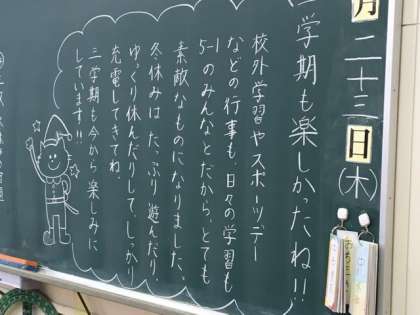 月二十三日(木)
二学期も楽しかったね!!
校外学習やスポーツデー
などの行事も、日々の学習も
5-1のみんなとだから、とても
素敵なものになりました。
冬休みは、たっぷり遊んだり、
ゆっくり休んだりして、しっかり
充電してきてね。
三学期も今から楽しみに
しています!!